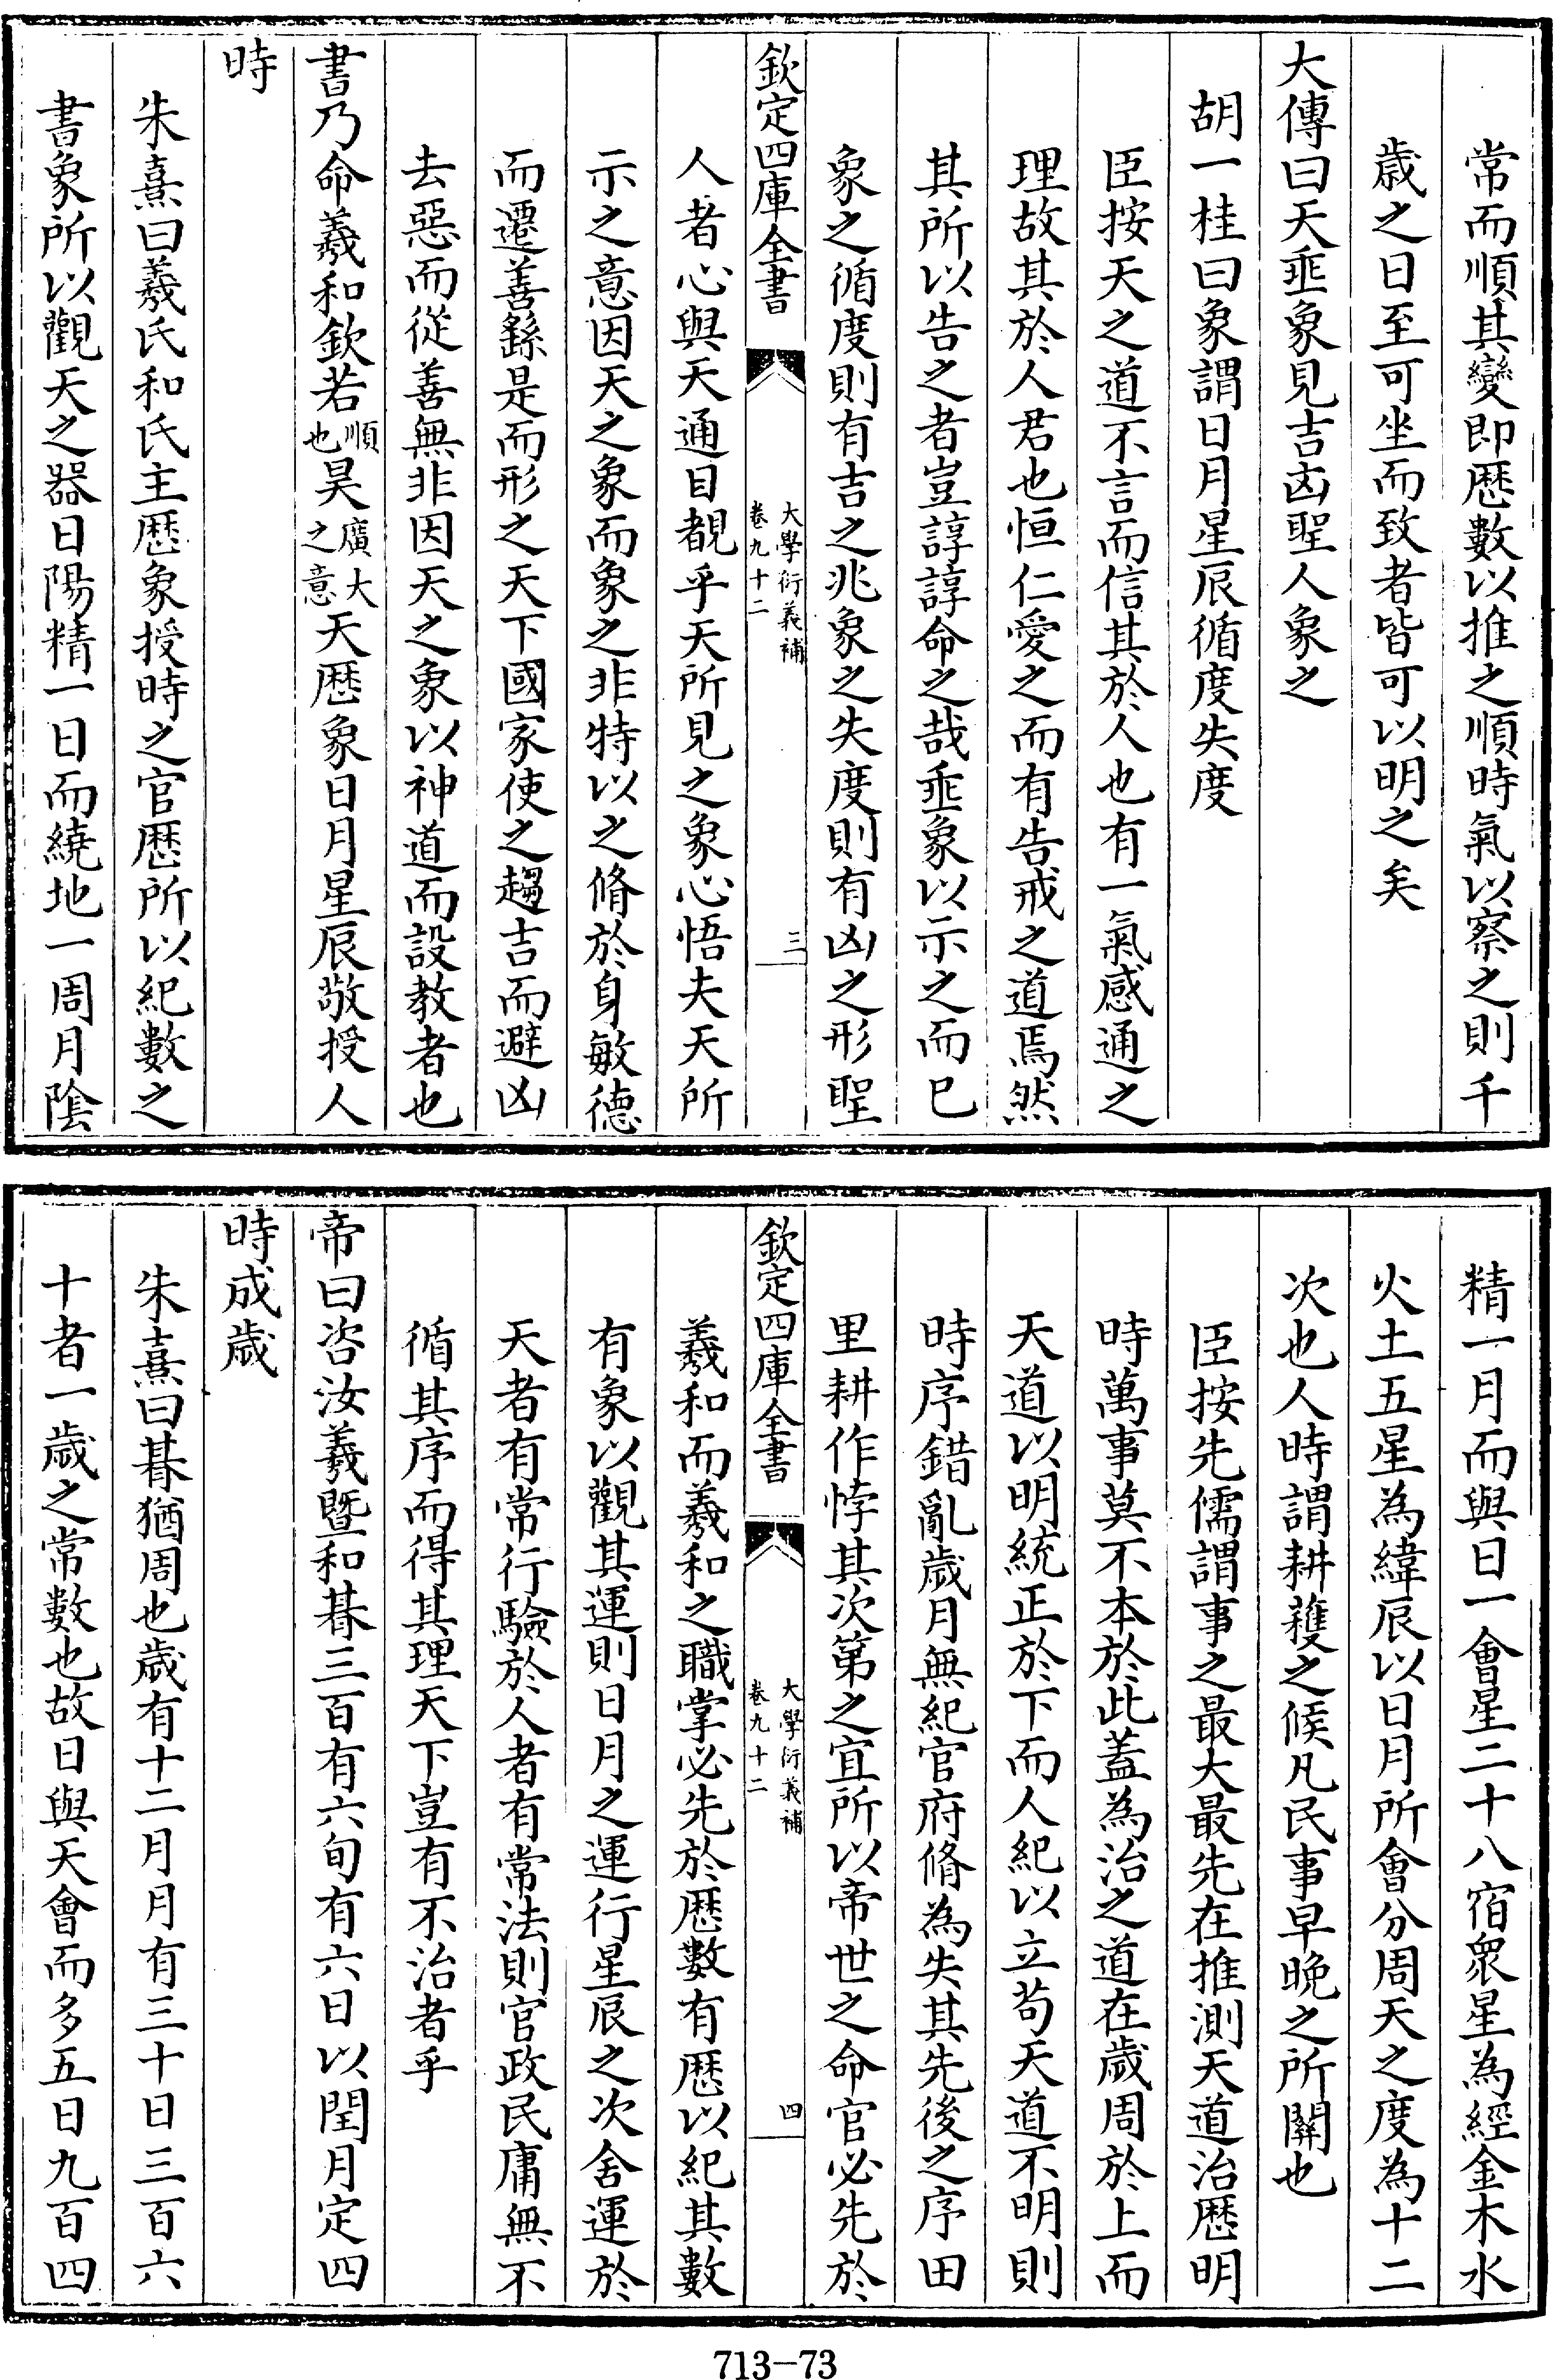 常而順其變即歴數以推之順時氣以察之則千
歳之日至可坐而致者皆可以明之矣
大傳曰天垂象見吉凶聖人象之
胡一桂曰象謂日月星辰循度失度
臣按天之道不言而信其於人也有一氣感通之
理故其於人君也恒仁愛之而有告戒之道焉然
其所以告之者豈諄諄命之哉垂象以示之而已
象之循度則有吉之兆象之失度則有凶之形聖
欽定四庫全書
大學衍義補
卷九十二
三
人者心與天通目覩乎天所見之象心悟夫天所
示之意因天之象而象之非特以之脩於身敏德
而遷善繇是而形之天下國家使之趨吉而避凶
去惡而從善無非因天之象以神道而設教者也
書乃命羲和欽若順也昊廣大之意天歴象日月星辰敬授人
時
朱熹曰羲氏和氏主歴象授時之官歴所以紀數之
書象所以觀天之器日陽精一日而繞地一周月陰
精一月而與日一會星二十八宿衆星為經金木水
火土五星為緯辰以日月所會分周天之度為十二
次也人時謂耕穫之候凡民事早晚之所關也
臣按先儒謂事之最大最先在推測天道治歴明
時萬事莫不本於此蓋為治之道在歳周於上而
天道以明統正於下而人紀以立苟天道不明則
時序錯亂歳月無紀官府脩為失其先後之序田
里耕作悖其次第之宜所以帝世之命官必先於
欽定四庫全書
大學衍義補
卷九十二
四
羲和而羲和之職掌必先於歴數有歴以紀其數
有象以觀其運則日月之運行星辰之次舍運於
天者有常行驗於人者有常法則官政民庸無不
循其序而得其理天下豈有不治者乎
帝曰咨汝羲暨和朞三百有六旬有六日以閏月定四
時成歳
朱熹曰朞猶周也歳有十二月月有三十日三百六
十者一歳之常數也故日與天會而多五日九百四
713-73